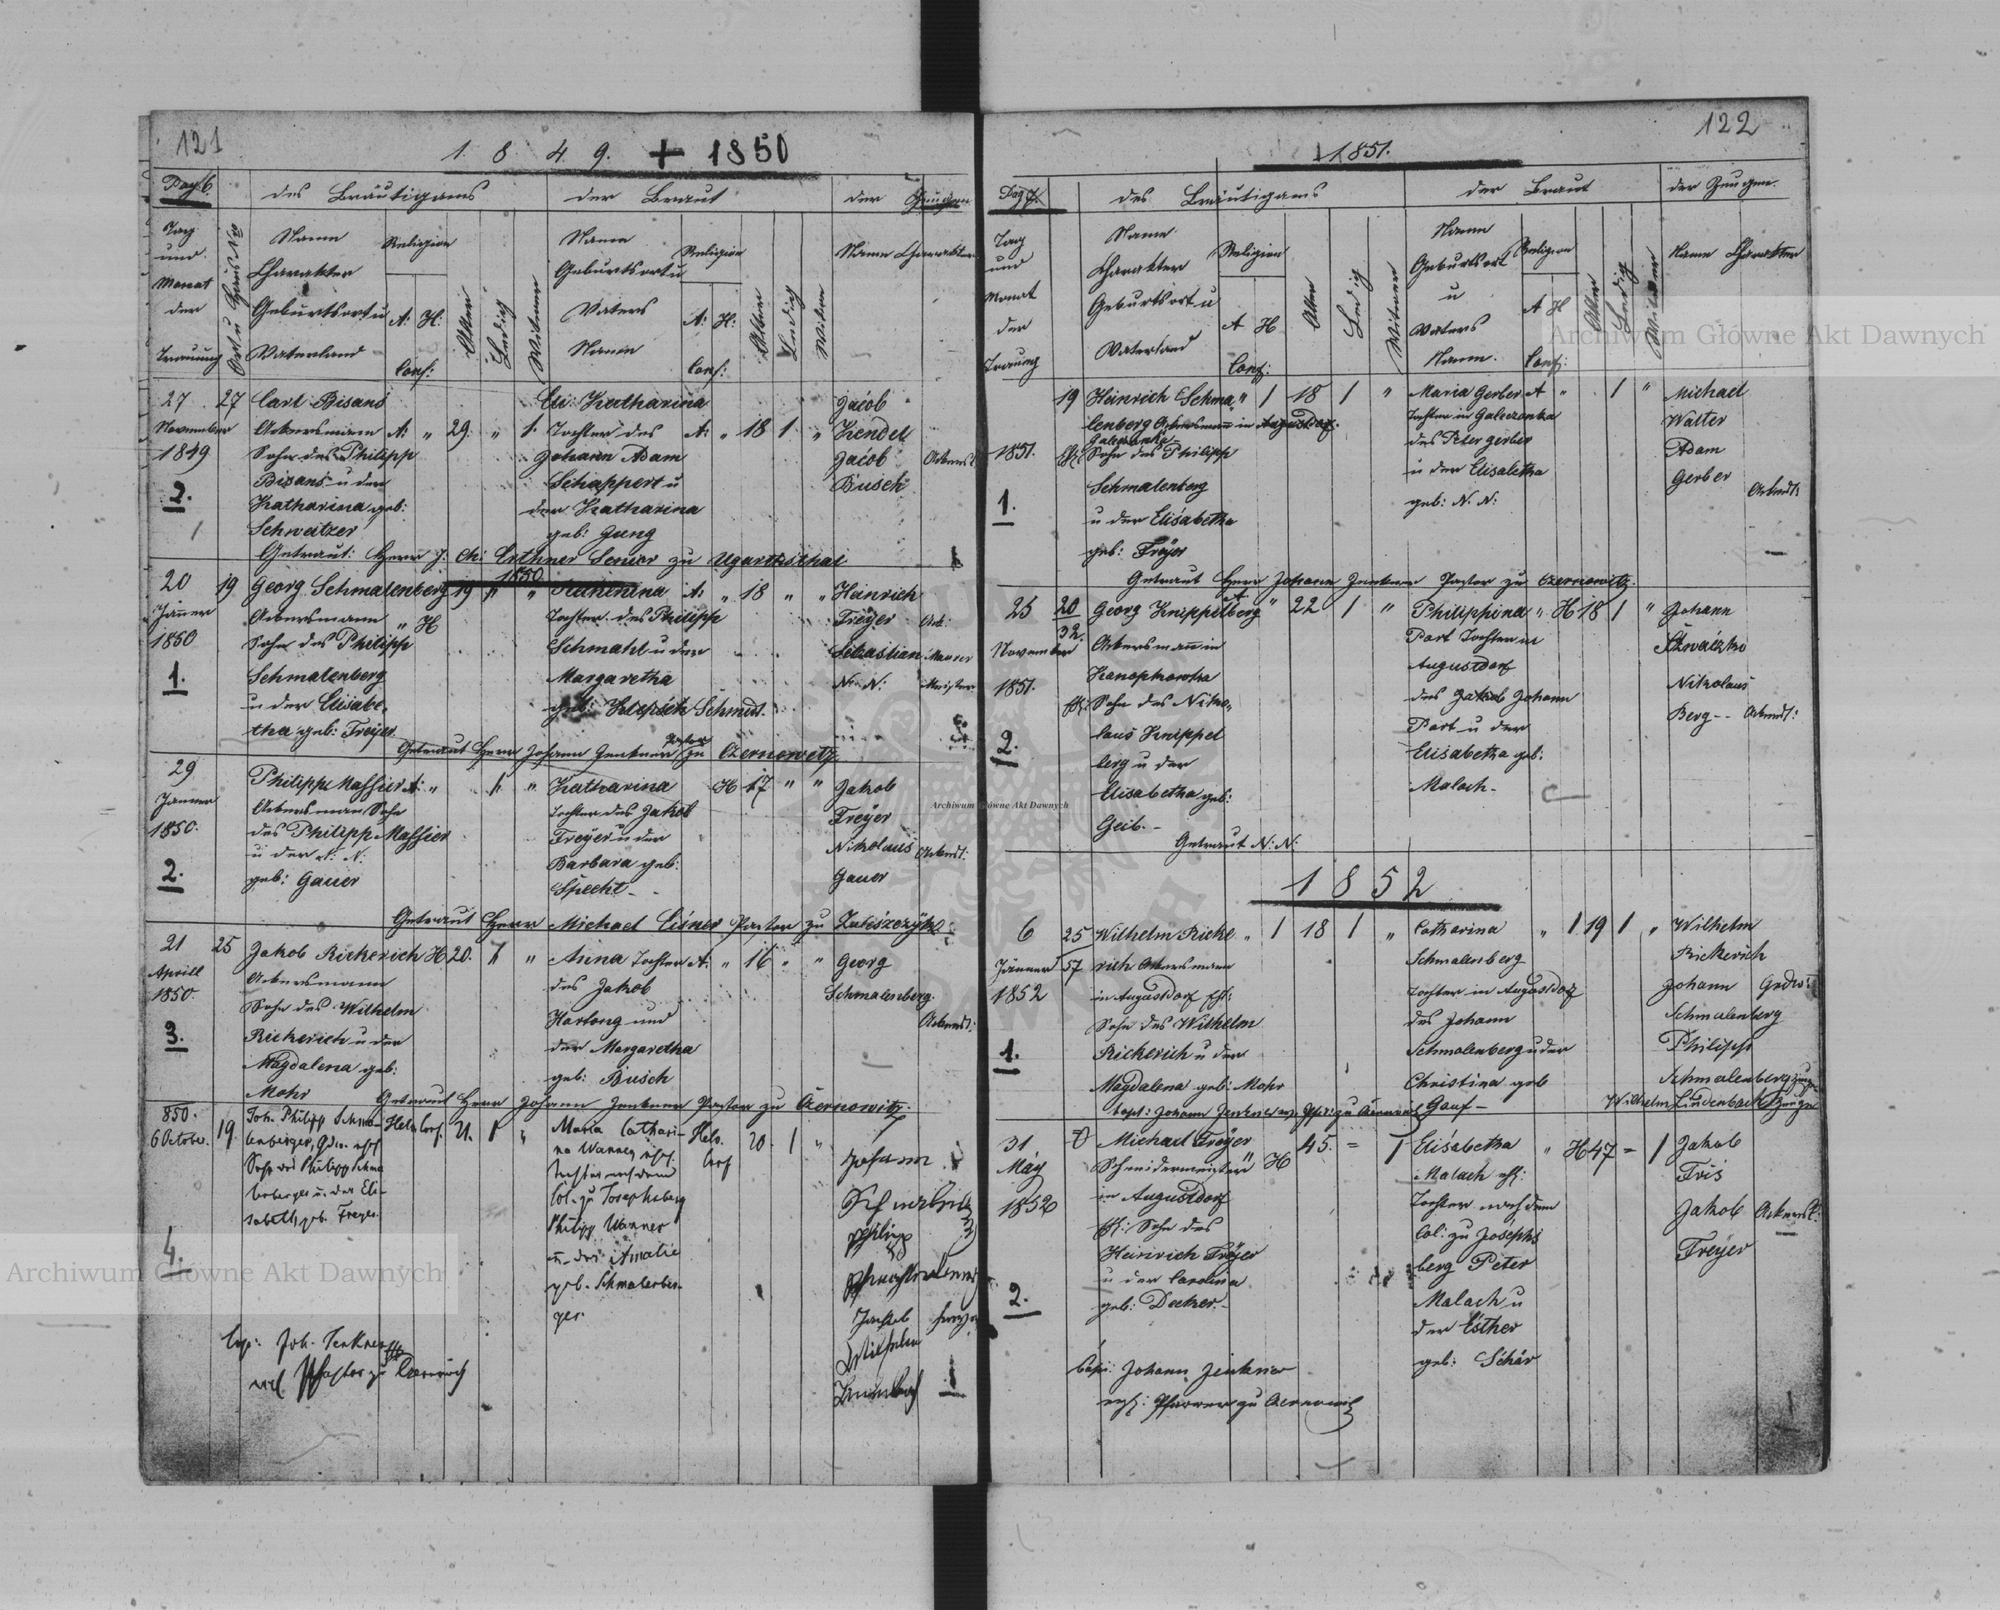 121
1. 8. 4. 9. + 1850
Pag 6.
des Bräutigams
der Braut
der Zeugen
Tag und Monat der Trauung
Ort u Haus Nro
Name Charakter Geburtsort u Vaterland
Religion
A: H:
Conf:
Alter
Ledig
Witwer
Name Geburtsort u Vaters Name
Religion
A: H:
Conf:
Alter
Ledig
Witwe
Name Charakter
27 27 Carl Bisans Katharina Jacob
November Ackersmann A: " 29. " 1. Tochter des A: " 18 1 " Kendel
1849 Sohn des Philipp Johann Adam Jacob Ackersl:
2. Bisans u der Schappert u Busch
Katharina geb: der Katharina
Schweitzer geb: Gung
Getraut: Herr J. Ch: Senior zu Ugartsthal
1850
20 19 Georg Schmalenberg 19 " " Katharina A: " 18 " " Heinrich
Jänner Ackersmann " H Tochter des Philipp Freyer Ack:
1850 Sohn des Philipp Schmahl u der Sebastian Maurer
1. Schmalenberg Margaretha N: N: Meister
u der Elisabe- geb: Schmidt.
tha geb: Freyer
Getraut Herr Johann Jenkner Pastor zu Czernowitz
29 Philipp Massier A: " 1 " Katharina H 17 " " Jakob
Jänner Ackersman Sohn Tochter des Jakob Freyer
1850. des Philipp Massier Freyer u der Nikolaus Ackersl:
u der N: N: Barbara geb: Gauer
2. geb: Gauer Specht
Getraut Herr Michael Pastor zu Zaleszczyk:
21 25 Jakob Rickerich H 20. 1 " Anna Tochter A: " 16 " " Georg
Aprill Ackersmann des Jakob Schmalenberg.
1850. Sohn des Wilhelm Hartong und Ackersl:
3. Rickerich u der der Margaretha
Magdalena geb: geb: Busch
Mohr
Getraut Herr Johann Jenkner Pastor zu Czernowitz.
850. Joh. Philipp Schma- Helv. Conf. 21. 1 " Maria Cathari- Helv. 20. 1 "
6 Octobr. 19. lenberger, na Wanner Conf
Sohn des Philipp Schma Tochter Johann
lenberger u. der Eli- Col. zu Josephsberg
sabeth, geb. Freyer. Philipp Wanner Philipp
4. u. der Amalie
geb. Schmalenber-
ger. Jakob Freyer
Cop: Joh. Jenkner Wilhelm
Pastor zu Czernowitz
122
1851.
Pag 7.
des Bräutigams
der Braut
der Zeugen.
Tag und Monat der Trauung
Name Charakter Geburtsort u Vaterland
Religion
A H
Conf:
Alter
Ledig
Witwer
Name Geburtsort u Vaters Name.
Religion
A H
Conf:
Alter
Ledig
Witwe
Name Charakter
19 Heinrich Schma " 1 18 1 " Maria Gerber A " 1 " Michael
lenberg Ackersmann in Augustdorf. Tochter in Galeczanka Walter
1851. Sohn des Philipp des Peter gerber Adam
Schmalenberg u der Elisabetha Gerber Ackersl:
1. u der Elisabetha geb: N: N:
geb: Freyer
Getraut Herr Johann Jenkner Pastor zu Czernowitz.
25 20 Georg Knippelberg " 22 1 " Philippina " H 18 1 " Johann
November 32. Ackersmann in Port Tochter in
1851. Konopkowka Augustdorf Nikolaus
Sohn des Niko- des Johann Berg -- Ackersl:
2. laus Knippel Port u der
berg u der Elisabetha geb:
Elisabetha geb: Malach-
Geib.-
Getraut N: N:
1852
6 25 Wilhelm Ricke " 1 18 1 " Catharina " 1 19 1 " Wilhelm
Jänner 57 rich Ackersmann Schmalenberg Rickerich
1852 in Augustdorf Tochter in Augustdorf Johann
Sohn des Wilhelm des Johann Schmalenberg
1. Rickerich u der Schmalenberg u der Philipp
Magdalena geb: Mohr Christina geb Schmalenberg Zeuge
Copt: Johann Jenkner zu Czernowitz Gauf- Wilhelm Laudenbach Zeuge
31 Michael Freyer 45. = 1 Elisabetha " H 47 = 1 Jakob
May Schneidermeister " H Malach Fris
1852 in Augustdorf Tochter nach dem Jakob Ackersl:
Sohn des Col: zu Josephs Freyer
Heinrich Freyer berg Peter
u der Carolina Malach u
2. geb: Decker.- der Esther
geb: Schär
Johann Jenkner
Pfarrer zu Czernowitz
Archiwum Główne Akt Dawnych
Archiwum Główne Akt Dawnych
Archiwum Główne Akt Dawnych